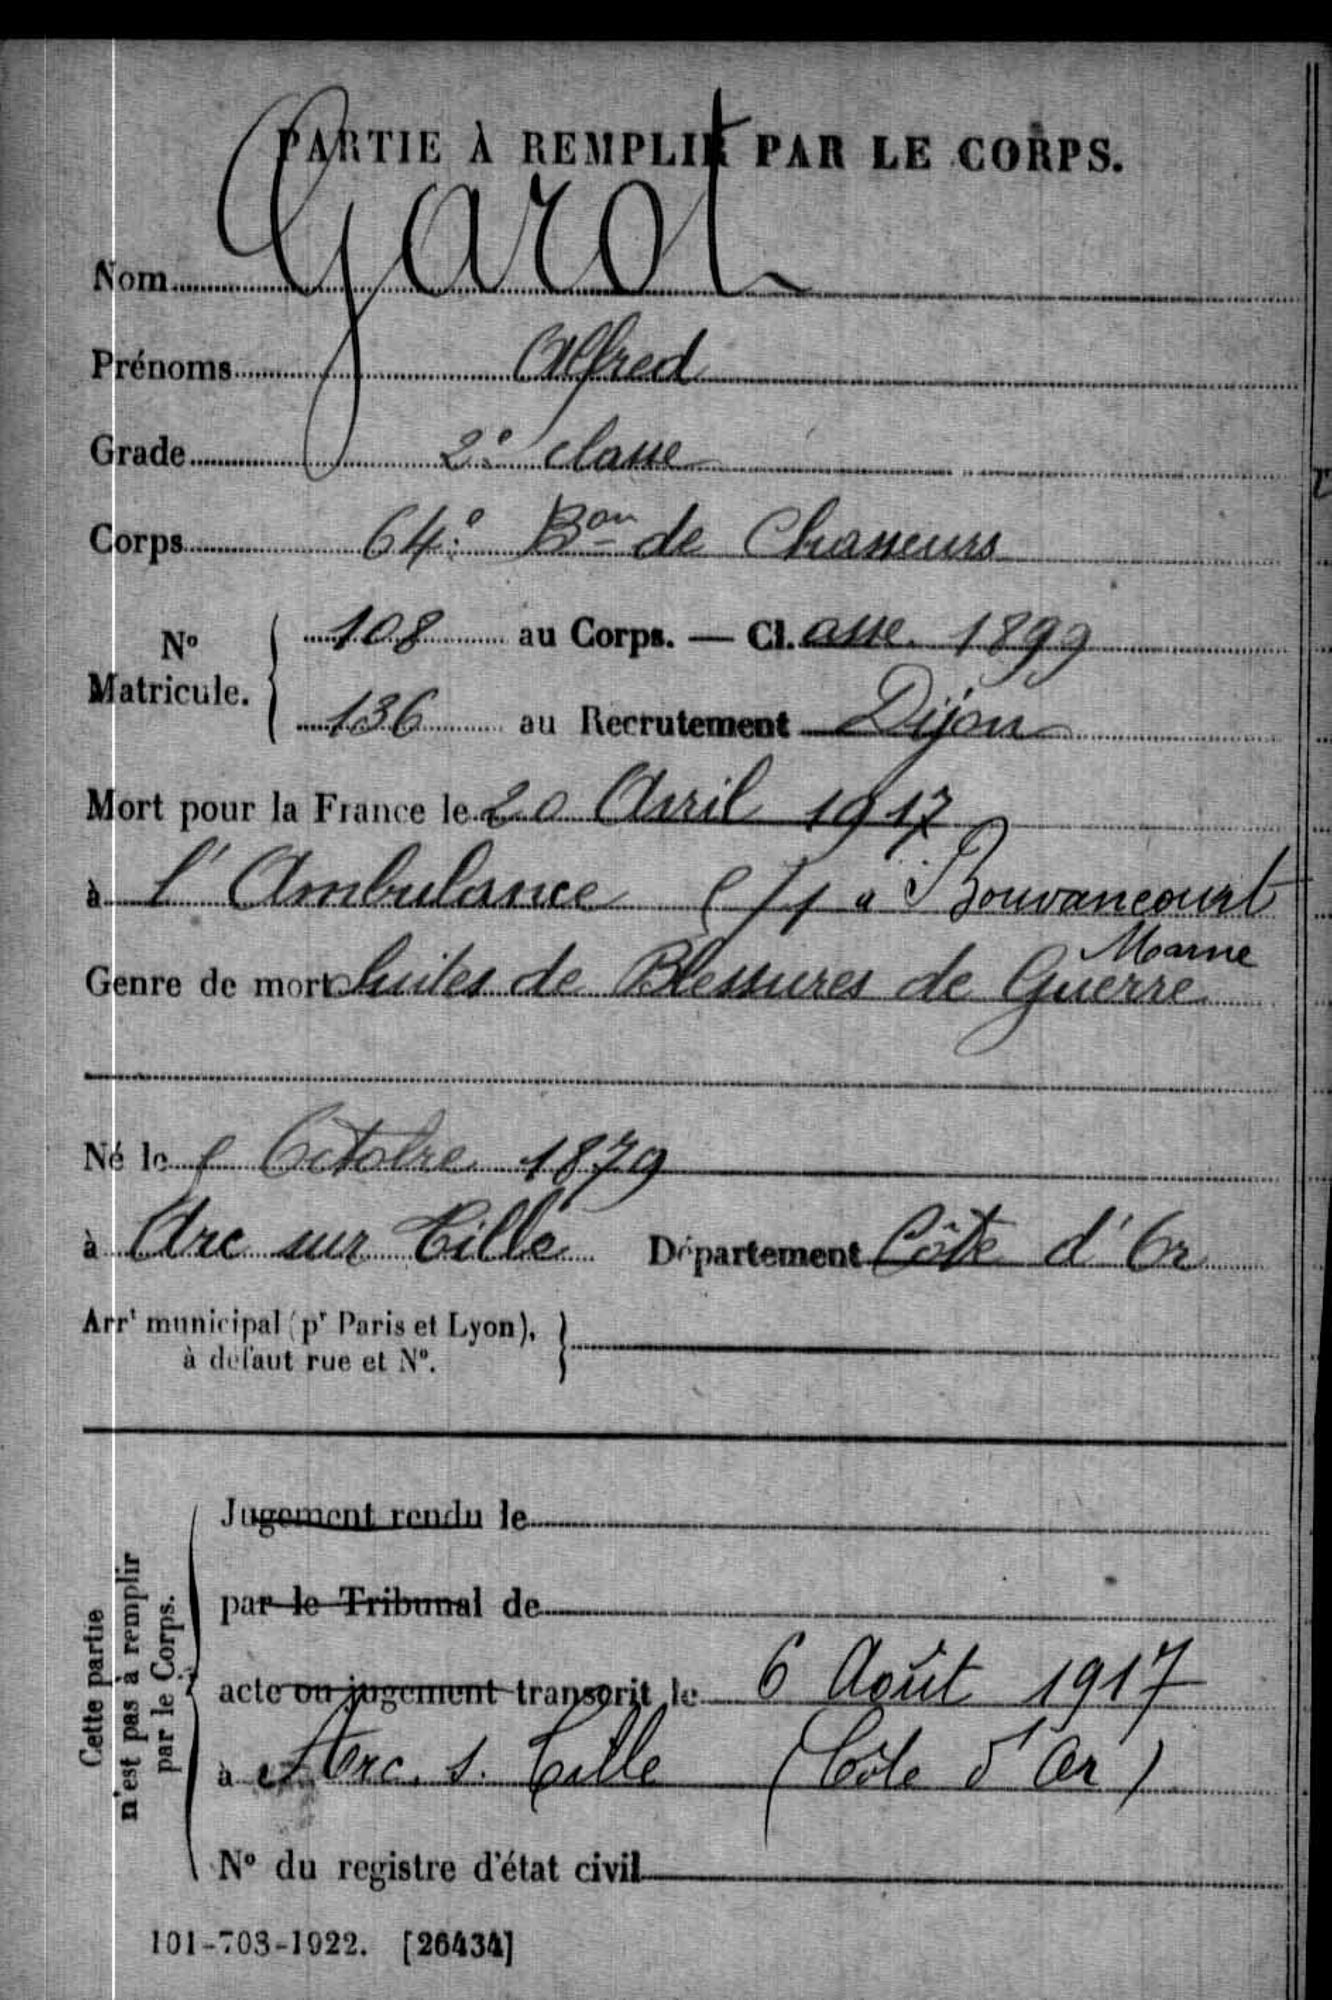 PARTIE À REMPLIR PAR LE CORPS.
Nom Garot
Prénoms Alfred
Grade 2e classe
Corps 64e Bon de Chasseurs
No Matricule. { 108 au Corps. — Cl. asse 1899
136 au Recrutement Dijon
Mort pour la France le 20 Avril 1917
à l'Ambulance /1 à Bouvancourt
Marne
Genre de mort Suites de Blessures de Guerre
Né le Octobre 1879
à Arc sur Tille Département Côte d'Or
Arrt municipal (pr Paris et Lyon),
à défaut rue et No.
Cette partie
n'est pas à remplir
par le Corps.
Jugement rendu le
par le Tribunal de
acte ou jugement transcrit le 6 Août 1917
à Arc. s. Tille (Côte d'Or)
No du registre d'état civil
101-708-1922. [26434]